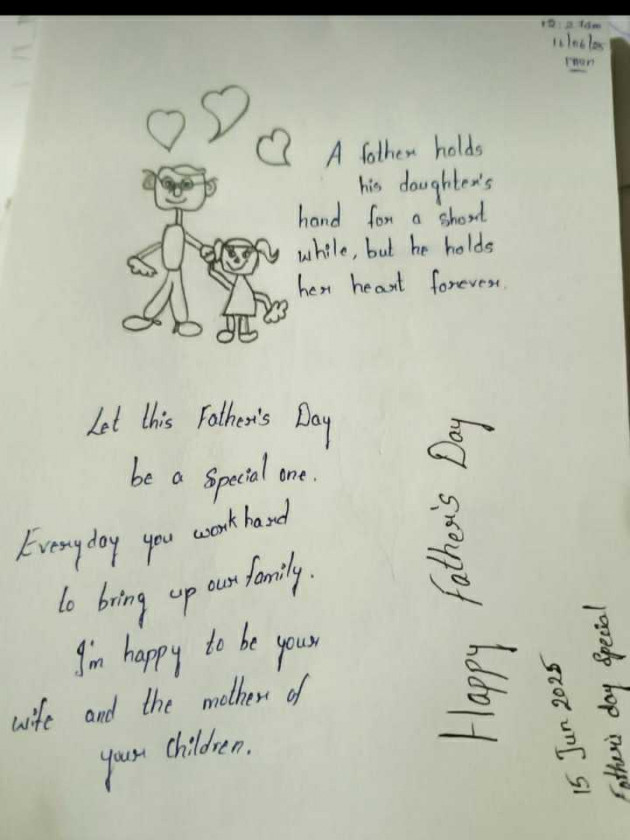 16/06/25
A father holds
his daughter's
hand for a short
while, but he holds
her heart forever.
Let this Father's Day
be a Special one.
Everyday you work hard
to bring up our family.
I'm happy to be your
wife and the mother of
your children.
Happy Father's Day
15 Jun 2025
Father's day Special